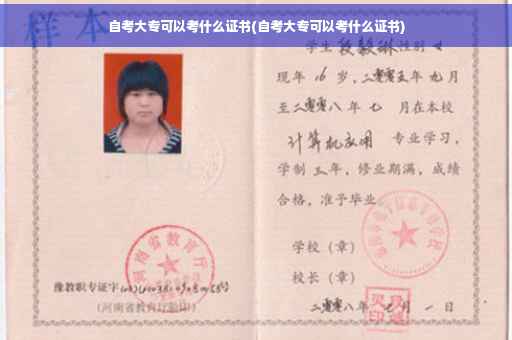 自考大专可以考什么证书(自考大专可以考什么证书)
样本
学生 段毅琳 性别 女
现年 16 岁，二零零五年 九 月
至二零零八年 七 月在本校
计算机应用 专业学习，
学制 三 年，修业期满，成绩
合格，准予毕业。
学校（章）
校长（章）
二零零八年 七 月 一 日
河南省教育厅
豫教职专证字
（河南省教育厅验印）